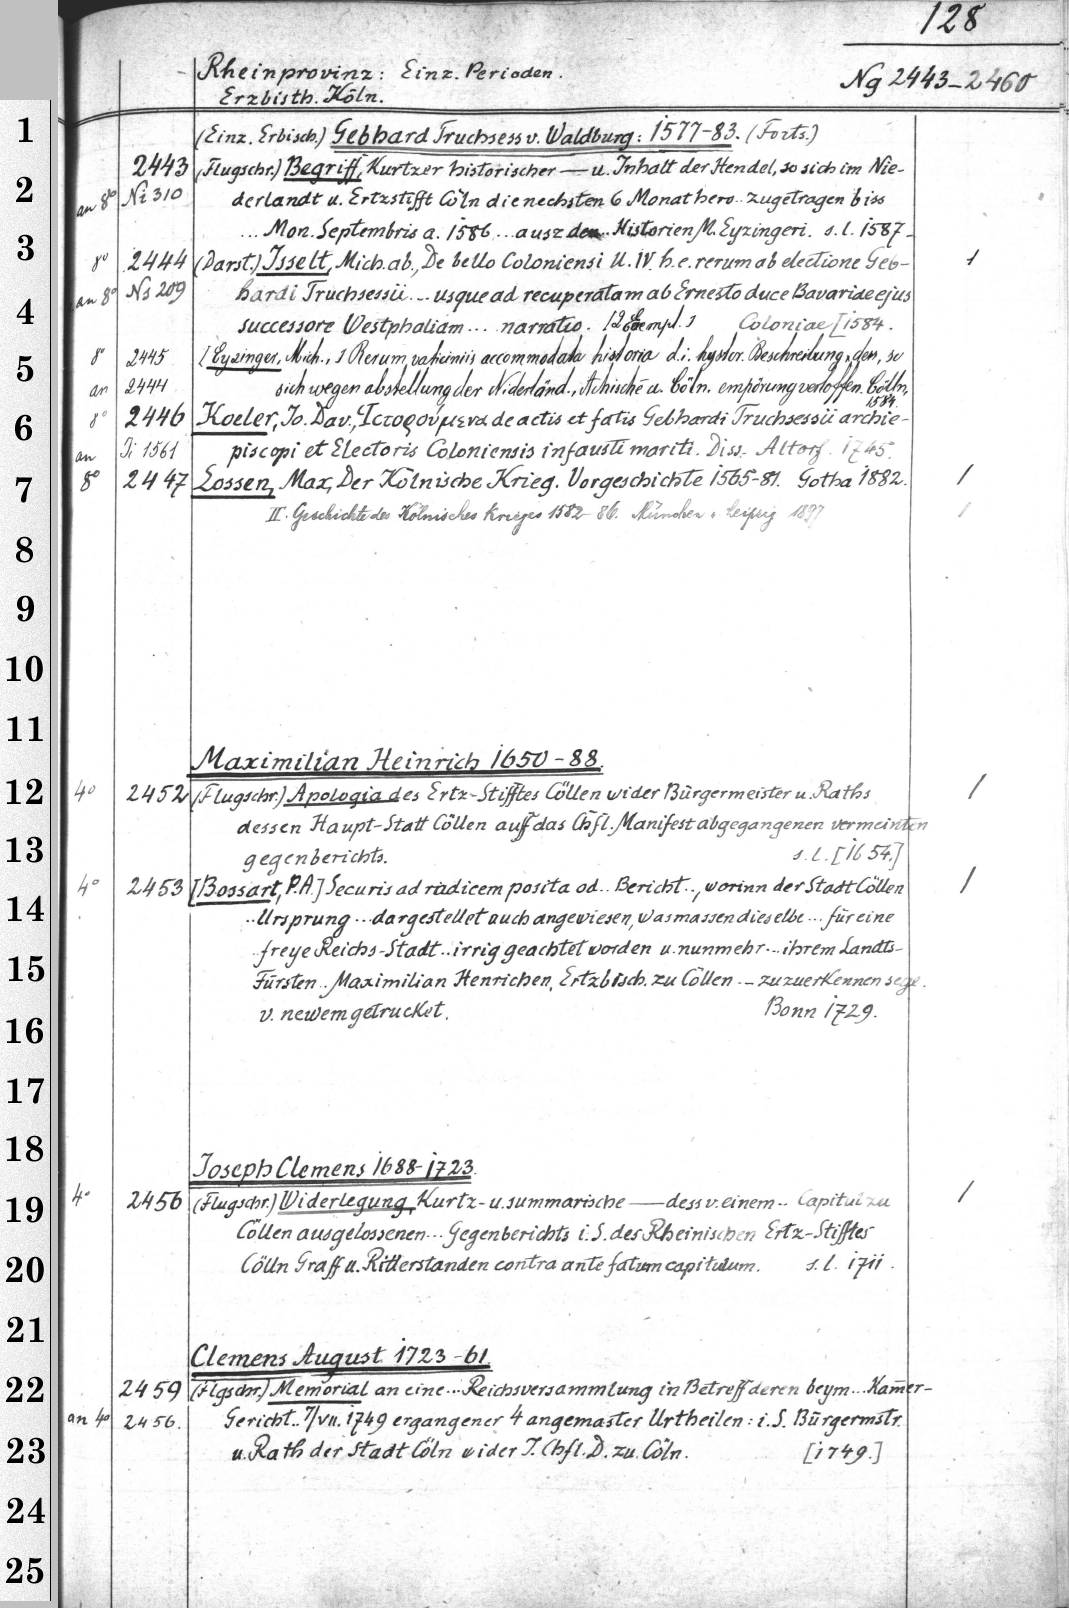 128
Rheinprovinz: Einz. Perioden.
Ng 2443-2460
Erzbisth. Köln.
1
(Einz. Erbisch.) Gebhard Truchsess v. Waldburg: 1577-83. (Forts.)
2443 (Flugschr.) Begriff, Kurtzer historischer — u. Inhalt der Hendel, so sich im Nie-
2
an 8° Ni 310 derlandt u. Ertzstifft Cöln die nechsten 6 Monat hero .. zugetragen biss
... Mon. Septembris a. 1586 ... ausz den .. Historien M. Eyzingeri. s. l. 1587
3
8° 2444 (Darst.) Isselt, Mich. ab, De bello Coloniensi ll. IV. h. e. rerum ab electione Geb- 1
an 8° Ns 209 hardi Truchsessii ... usque ad recuperatam ab Ernesto duce Bavariae ejus
4
successore Westphaliam ... narratio. [2 Exempl.] Coloniae [1584.
5
8° 2445 [Eyzinger, Mich.,] Rerum vaticiniis accommodata historia d. i. hystor. Beschreibung .. den, so
an 2444 sich wegen abstellung der Niderländ., Achische u. Cöln. empörung verloffen. Cölln,
1584.
8° 2446 Koeler, Jo. Dav., Ἱστορούμενα de actis et fatis Gebhardi Truchsessii archie-
6
an Ji 1561 piscopi et Electoris Coloniensis infausti mariti. Diss. Altorf. 1745.
7
8° 2447 Lossen, Max, Der Kölnische Krieg. Vorgeschichte 1565-81. Gotha 1882. 1
II. Geschichte des Kölnisches Krieges 1582-86. München u. Leipzig 1897 1
8
9
10
11
Maximilian Heinrich 1650-88.
12
4° 2452 (Flugschr.) Apologia des Ertz-Stifftes Cöllen wider Bürgermeister u. Raths 1
dessen Haupt-Statt Cöllen auff das Chfl. Manifest abgegangenen vermeinten
13
gegenberichts. s. l. [1654.]
4° 2453 [Bossart, P. A.] Securis ad radicem posita od .. Bericht .., worinn der Stadt Cöllen 1
14
.. Ursprung ... dargestellet auch angewiesen, was massen dieselbe ... für eine
freye Reichs-Stadt .. irrig geachtet worden u. nunmehr ... ihrem Landts-
15
Fürsten .. Maximilian Henrichen, Ertzbisch. zu Cöllen ... zuzuerkennen seye.
16
v. newem getrucket. Bonn 1729.
17
18
Joseph Clemens 1688-1723.
19
4° 2456 (Flugschr.) Widerlegung, Kurtz- u. summarische — dess v. einem .. Capitul zu 1
Cöllen ausgelossenen ... Gegenberichts i. S. des Rheinischen Ertz-Stifftes
20
Cölln Graff u. Ritterstanden contra ante fatum capitulum. s. l. 1711.
21
Clemens August 1723-61.
22
2459 (Flgschr.) Memorial an eine ... Reichsversammlung in Betreff deren beym ... Kam̄er-
an 4° 2456. Gericht .. 7/VII. 1749 ergangener 4 angemaster Urtheilen: i. S. Bürgermstr.
23
u. Rath der Stadt Cöln wider I. Chfl. D. zu Cöln. [1749.]
24
25